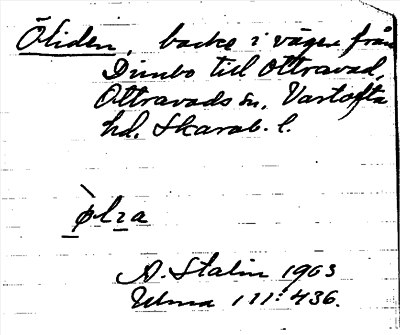 Öliden, backe i vägen från
Dimbo till Ottravad,
Ottravads sn, Vartofta
hd, Skarab. l.
A. Stalin 1903
Ulma 111:436.